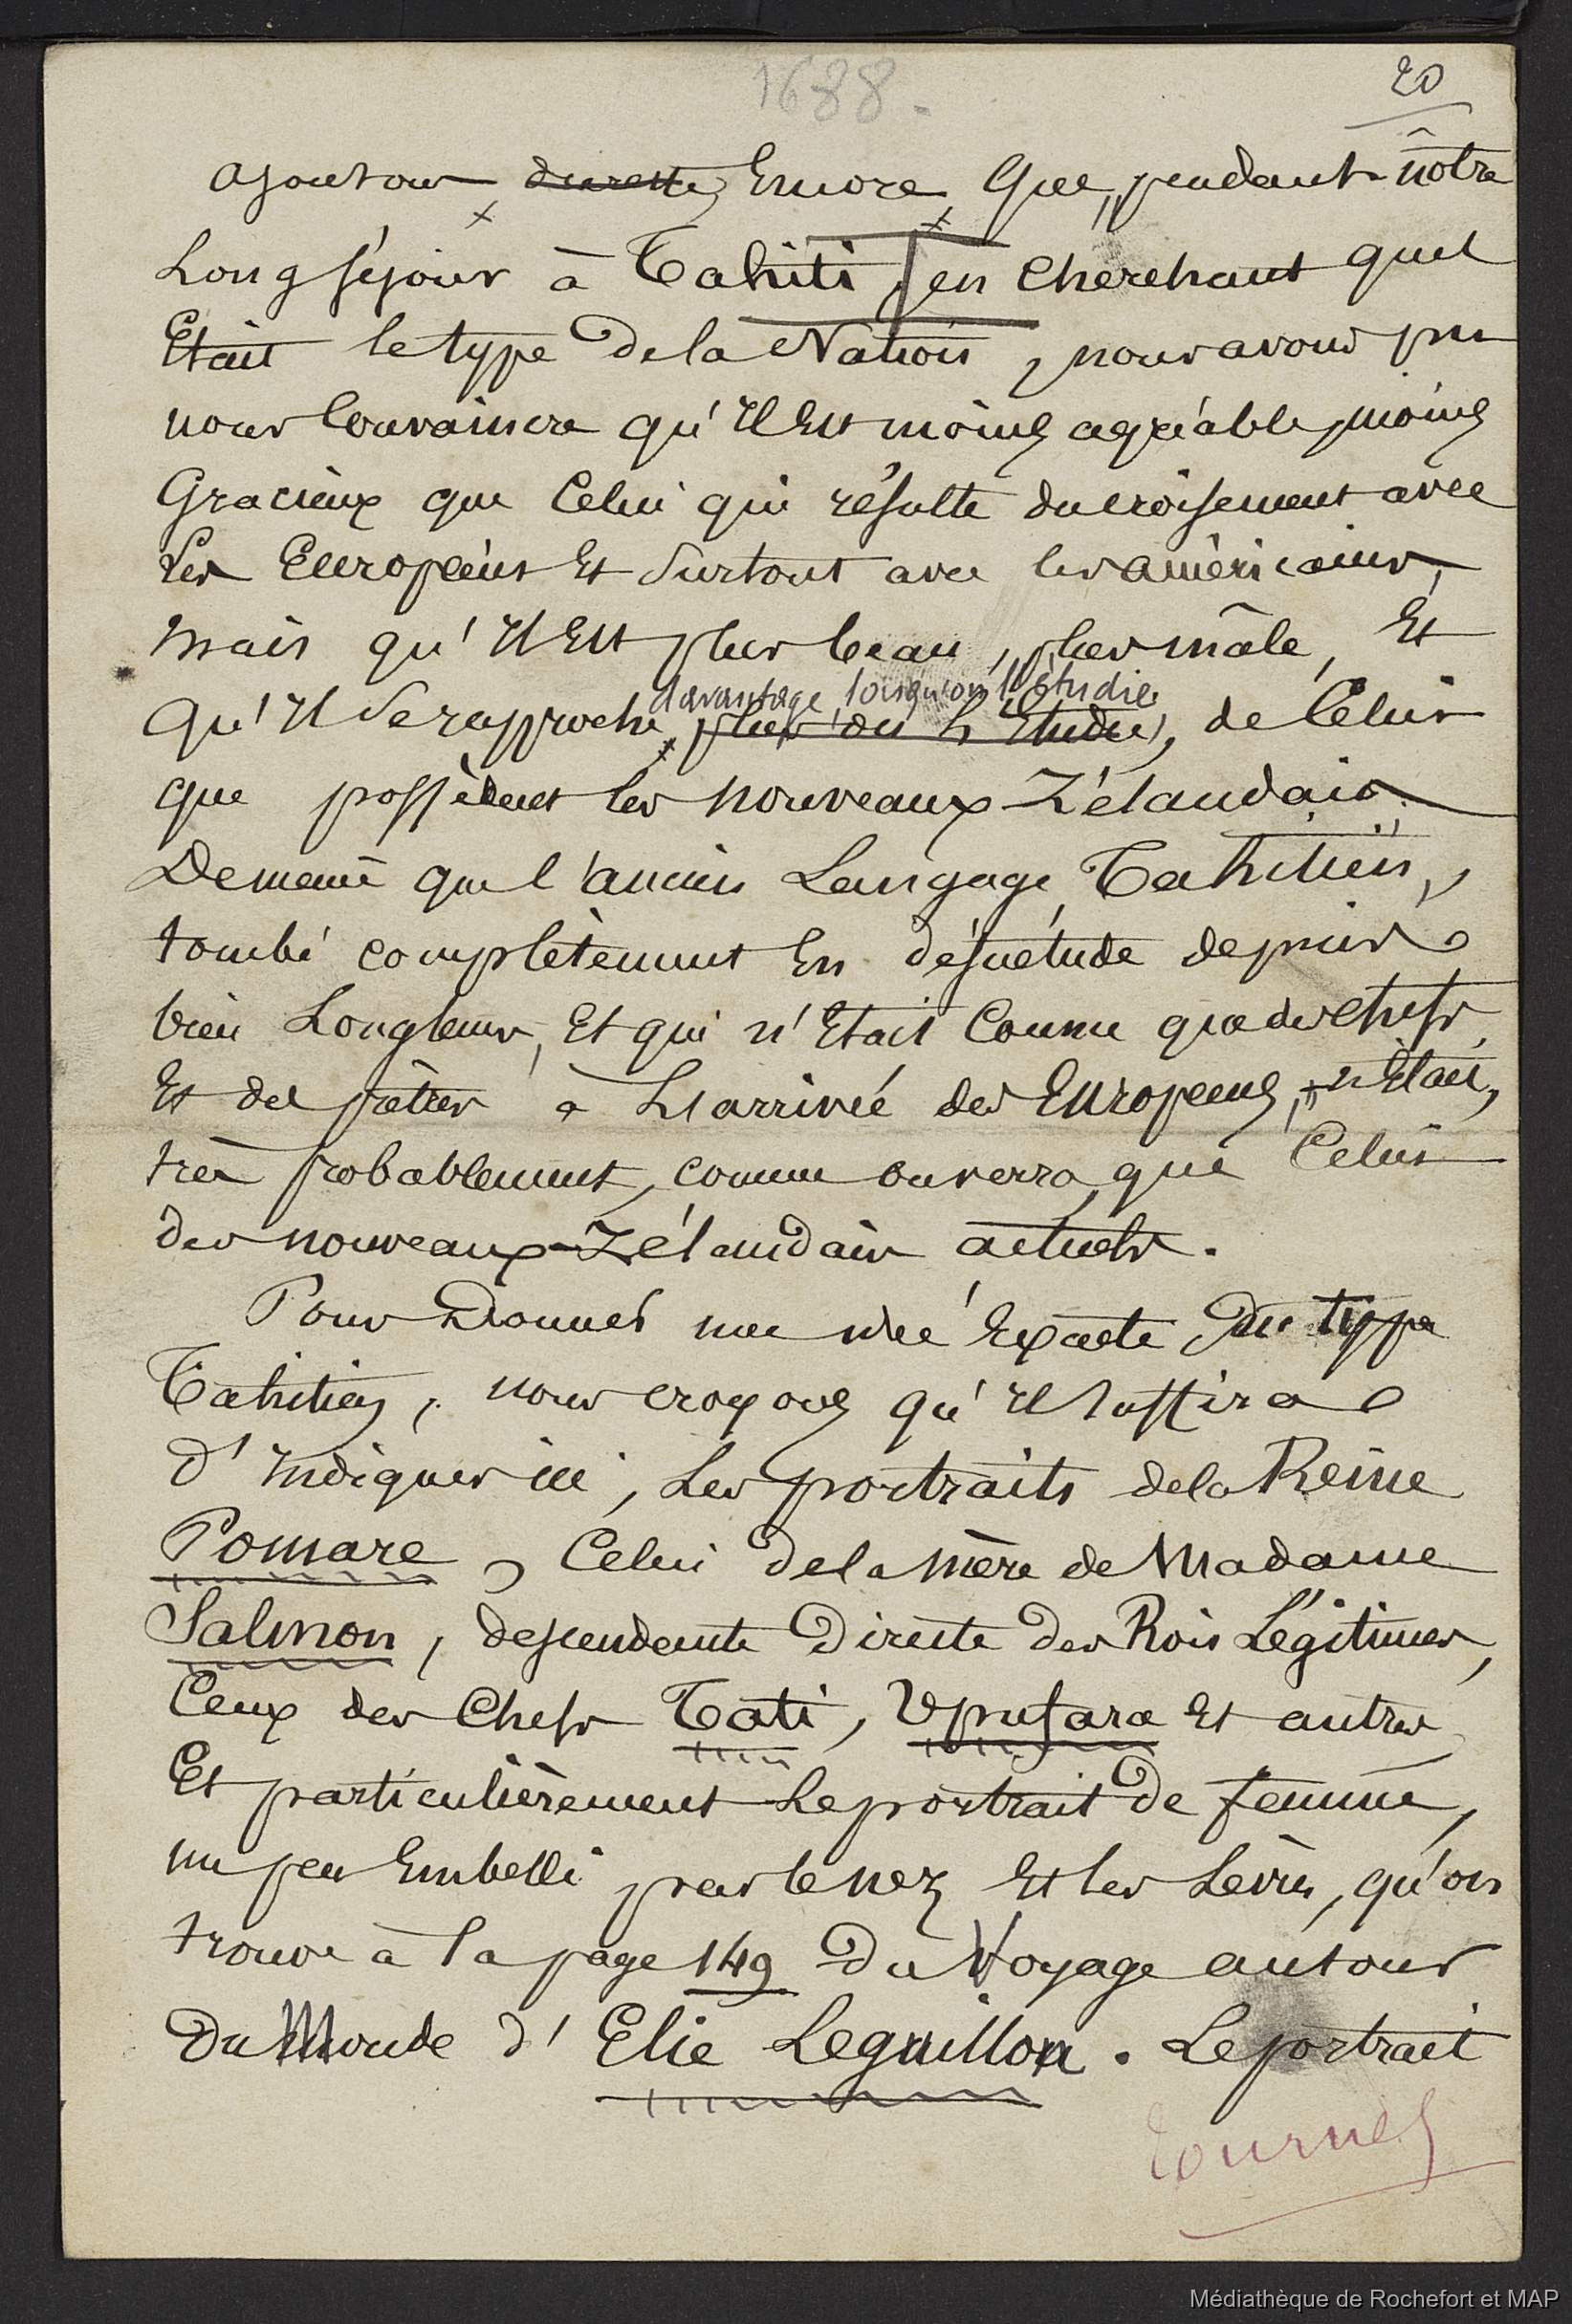 1688.
20
ajoutons du reste, Encore, que, pendant nôtre
Long séjour à Tahiti, en cherchant quel
Etait le type de la Nation, nous avons pu
nous Convaincre qu'Il Est moins agréable, moins
Gracieux que Celui qui résulte du croisement avec
Les Européens Et Surtout avec les américains,
mais qu'Il Est plus beau, plus mâle, Et
davantage, lorsqu'on l'étudie
Qu'Il Se rapproche, plus on l'Etudie, de Celui
que possèdent les nouveaux-Zélandais.
De meme que l'ancien Langage Tahitien,
tombé complètement En désuétude depuis
bien Longtems, Et qui n'Etait Connu que des chefs
Et des prêtres à L'arrivée des Européens, n'Etait,
très probablement, comme on verra, que Celui
des nouveaux-Zélandais actuels.
Pour Donner une idée Exacte Du type
Tahitien, nous croyons qu'Il Suffira
d'Indiquer ici, Les portraits de la Reine
Pomare, Celui de la mère de Madame
Salmon, descendante Directe des Rois Légitimes,
Ceux des Chefs Tati, Uputara Et autres,
Et particulièrement Le portrait De femme,
un peu Embelli par le nez Et les Lèvres, qu'on
trouve à la page 149 Du Voyage autour
Du Monde d'Elie Leguillon. Le portrait
tournez
Médiathèque de Rochefort et MAP